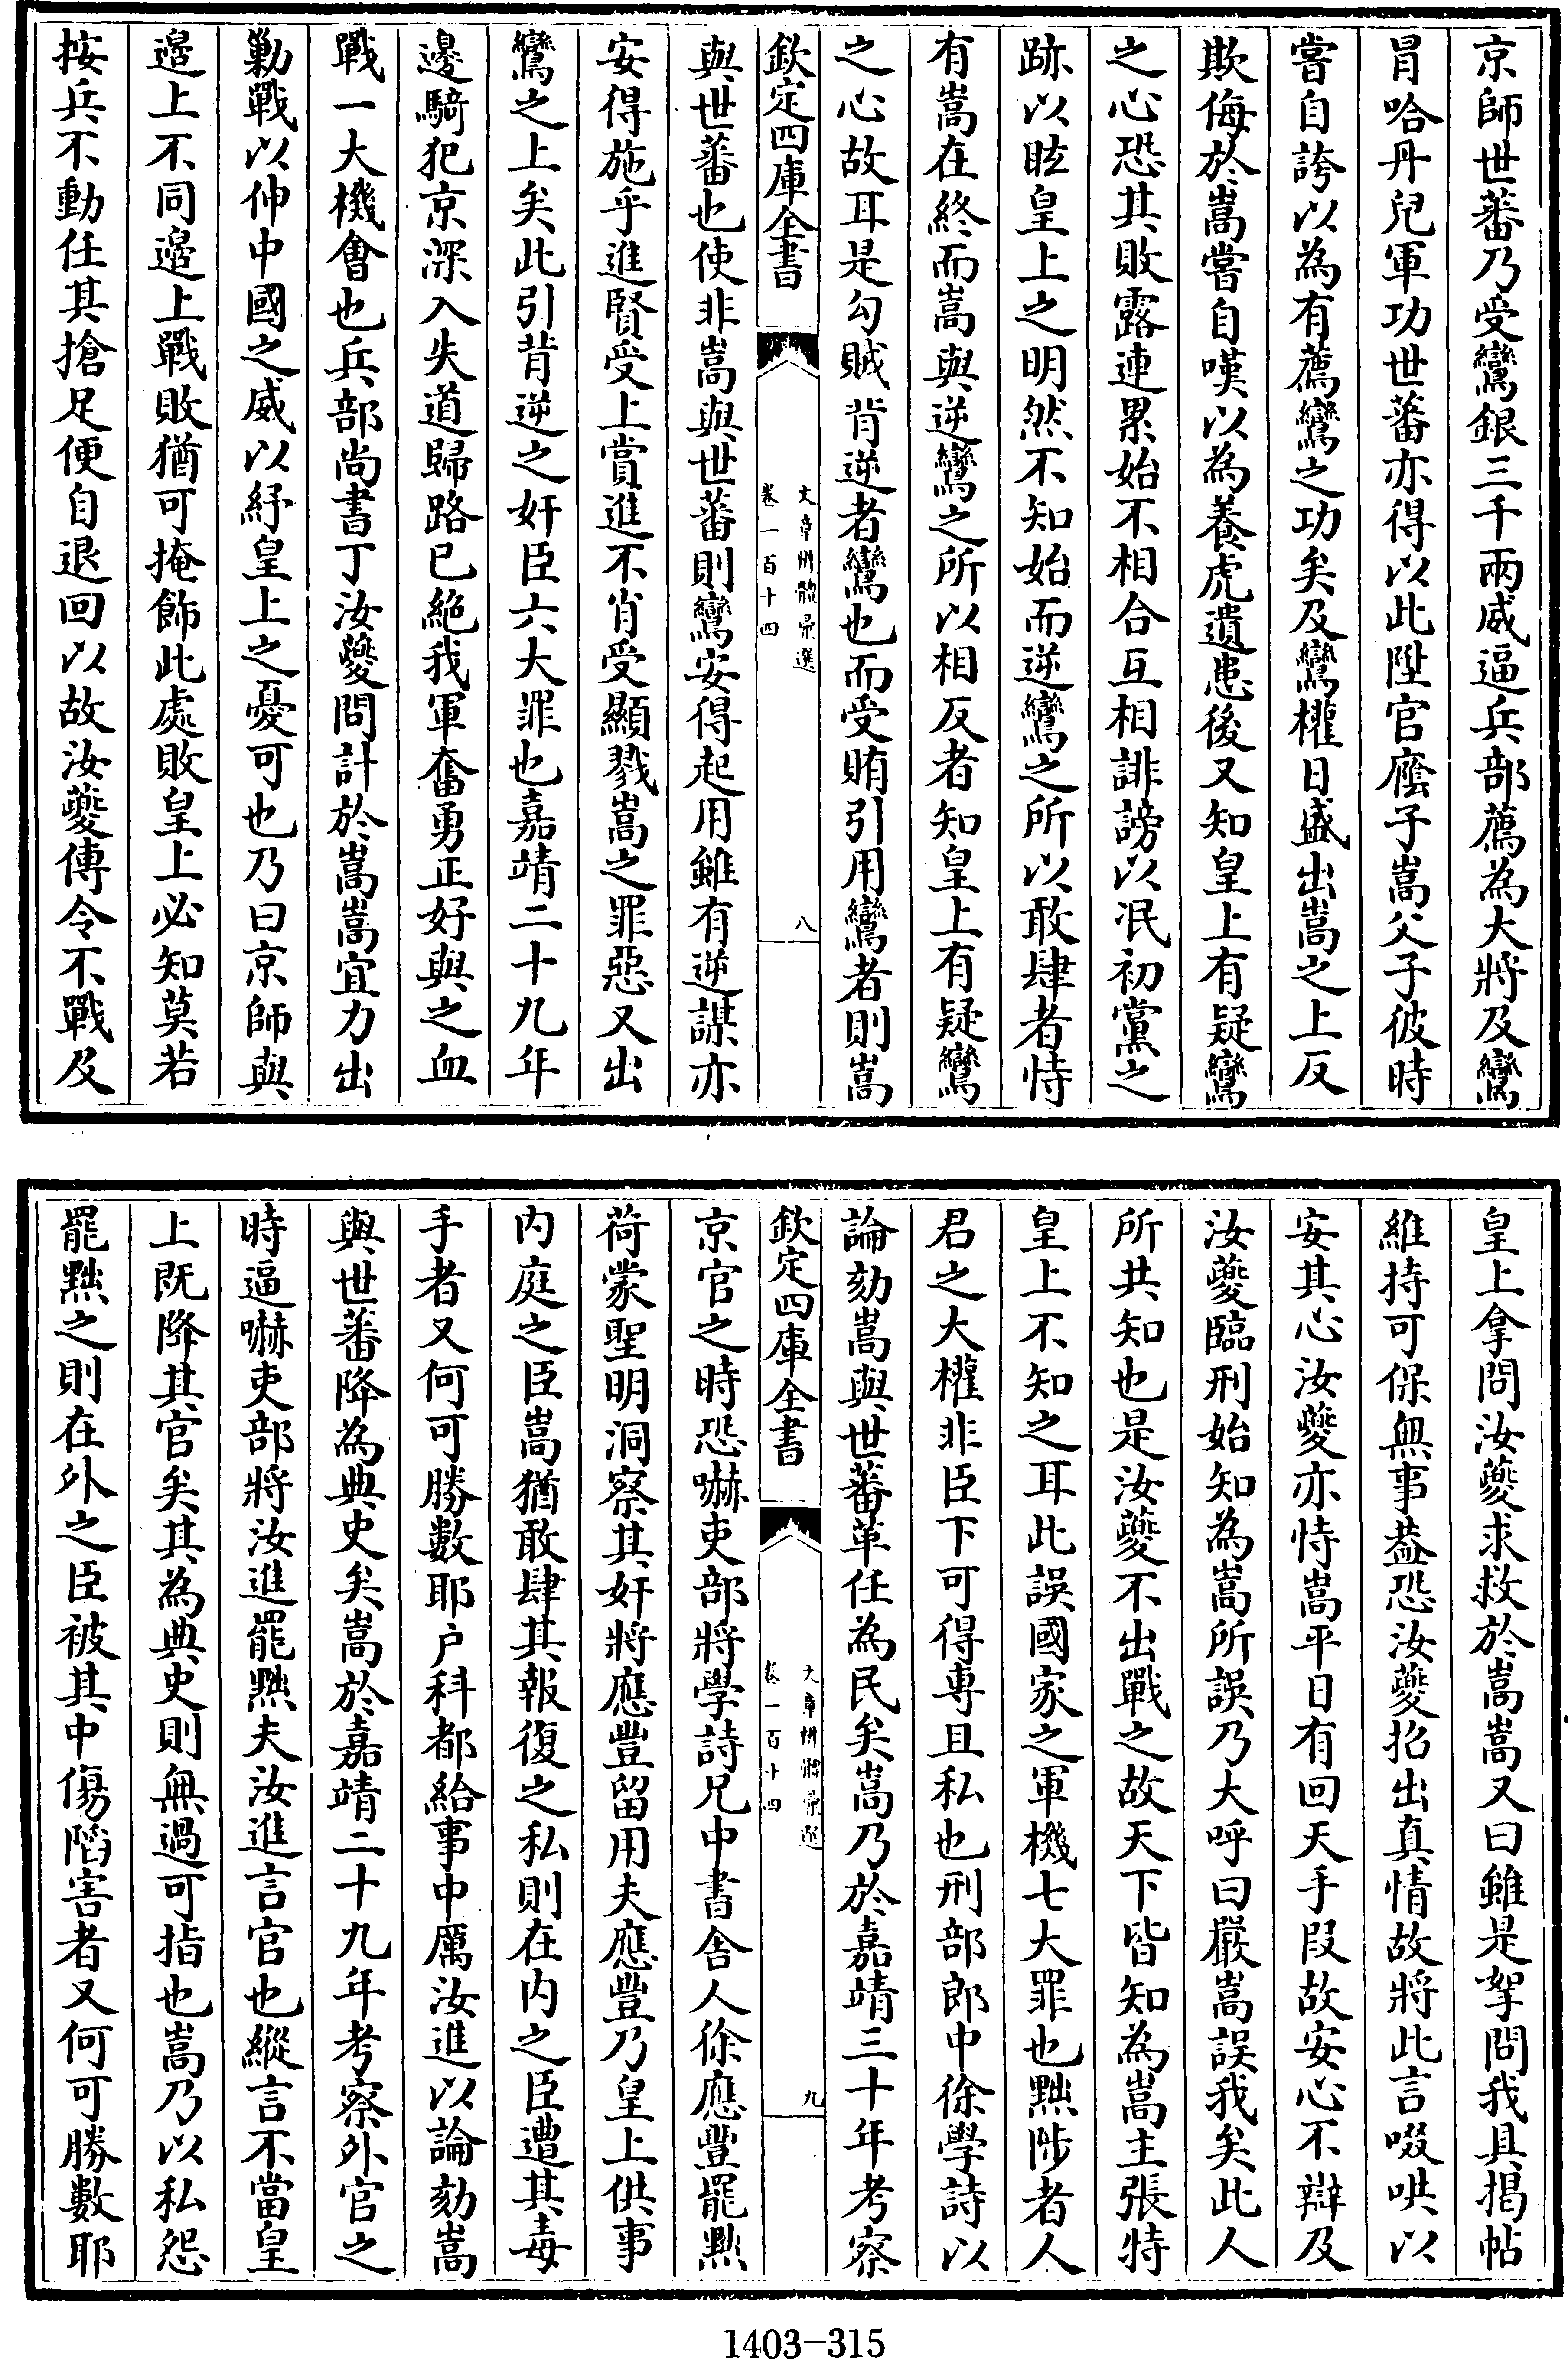 京師世蕃乃受鸞銀三千兩威逼兵部薦為大將及鸞
冒哈丹兒軍功世蕃亦得以此陞官廕子嵩父子彼時
嘗自誇以為有薦鸞之功矣及鸞權日盛出嵩之上反
欺侮於嵩嘗自嘆以為養虎遺患後又知皇上有疑鸞
之心恐其敗露連累始不相合互相誹謗以泯初黨之
跡以眩皇上之明然不知始而逆鸞之所以敢肆者恃
有嵩在終而嵩與逆鸞之所以相反者知皇上有疑鸞
之心故耳是勾賊背逆者鸞也而受賄引用鸞者則嵩
欽定四庫全書
文章辨體彙選
卷一百十四
八
與世蕃也使非嵩與世蕃則鸞安得起用雖有逆謀亦
安得施乎進賢受上賞進不肖受顯戮嵩之罪惡又出
鸞之上矣此引背逆之奸臣六大罪也嘉靖二十九年
邊騎犯京深入失道歸路已絕我軍奮勇正好與之血
戰一大機會也兵部尚書丁汝夔問計於嵩嵩宜力出
勦戰以伸中國之威以紓皇上之憂可也乃曰京師與
邊上不同邊上戰敗猶可掩飾此處敗皇上必知莫若
按兵不動任其搶足便自退回以故汝夔傳令不戰及
皇上拿問汝夔求救於嵩嵩又曰雖是拏問我具揭帖
維持可保無事葢恐汝夔招出真情故將此言啜哄以
安其心汝夔亦恃嵩平日有回天手段故安心不辯及
汝夔臨刑始知為嵩所誤乃大呼曰嚴嵩誤我矣此人
所共知也是汝夔不出戰之故天下皆知為嵩主張特
皇上不知之耳此誤國家之軍機七大罪也黜陟者人
君之大權非臣下可得專且私也刑部郎中徐學詩以
論劾嵩與世蕃革任為民矣嵩乃於嘉靖三十年考察
欽定四庫全書
文章辨體彙選
卷一百十四
九
京官之時恐嚇吏部將學詩兄中書舍人徐應豐罷黜
荷蒙聖明洞察其奸將應豐留用夫應豐乃皇上供事
内庭之臣嵩猶敢肆其報復之私則在内之臣遭其毒
手者又何可勝數耶户科都給事中厲汝進以論劾嵩
與世蕃降為典史矣嵩於嘉靖二十九年考察外官之
時逼嚇吏部將汝進罷黜夫汝進言官也縱言不當皇
上既降其官矣其為典史則無過可指也嵩乃以私怨
罷黜之則在外之臣被其中傷陷害者又何可勝數耶
1403-315